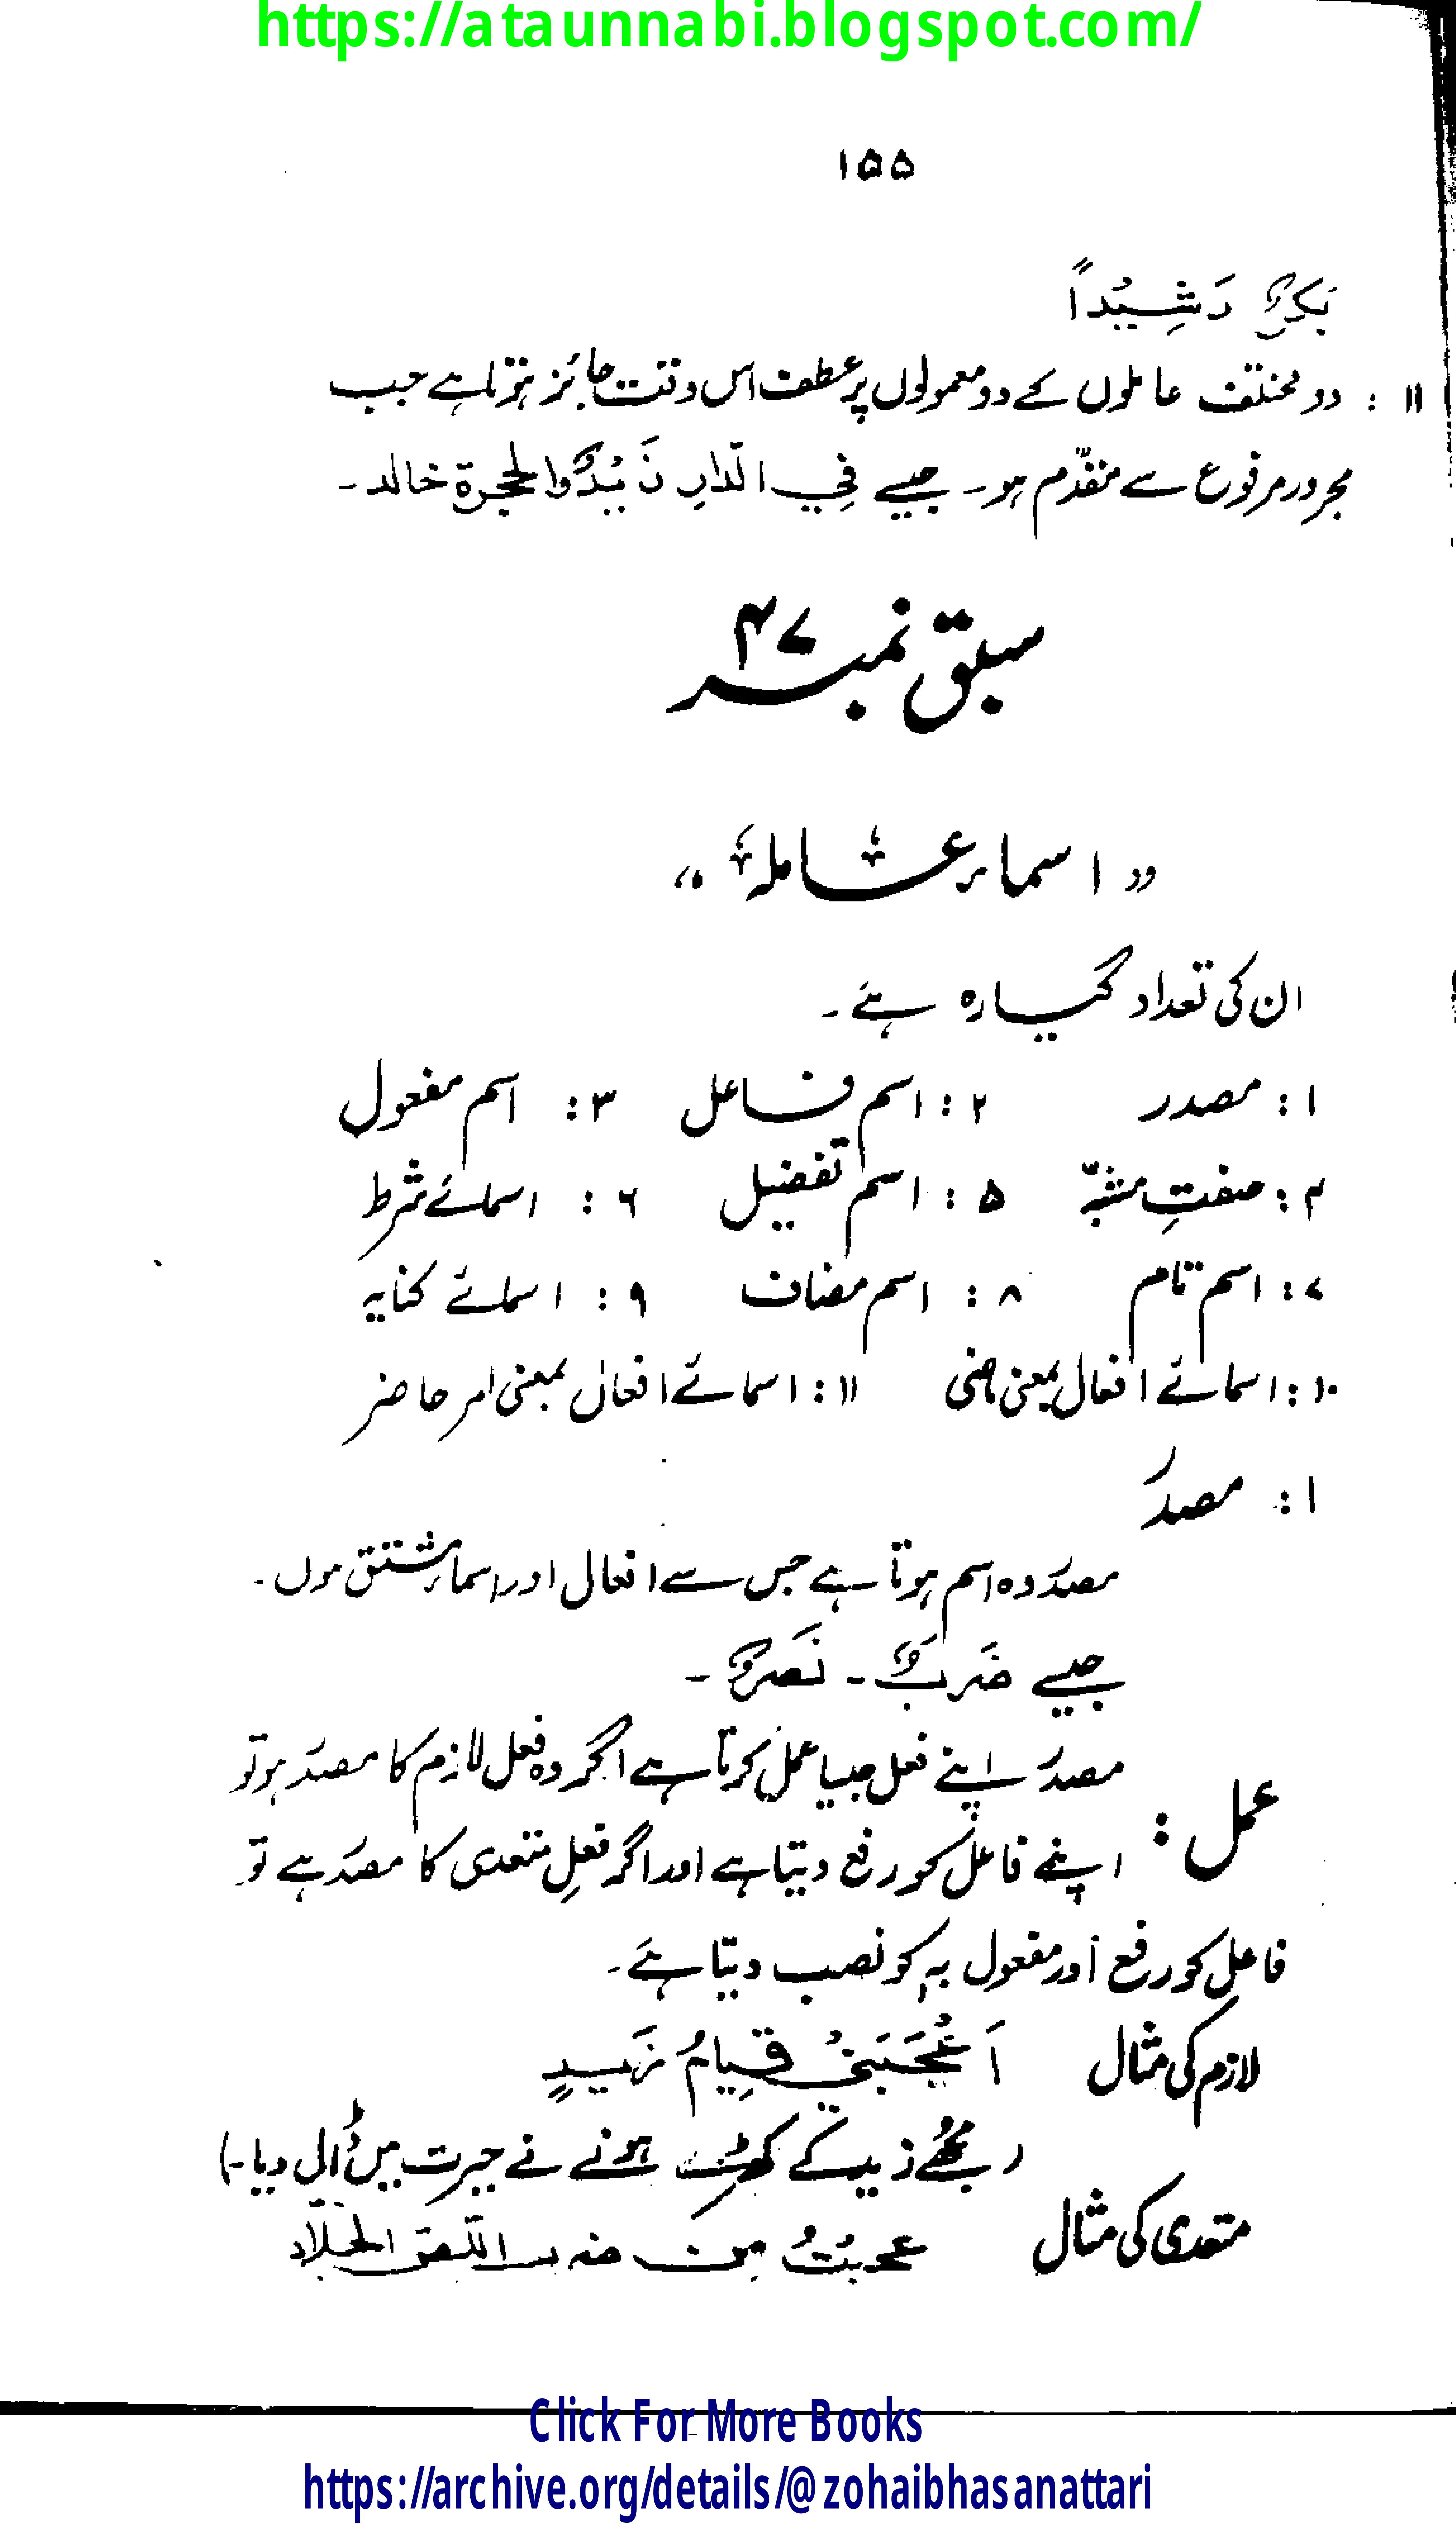 https://ataunnabi.blogspot.com/
۱۵۵
بَكرٌ رَشِيْداً
۱۱ : دو مختلف عاملوں کے دو معمولوں پر عطف اس وقت جائز ہوتا ہے جب
مجرور مرفوع سے مقدّم ہو۔ جیسے فِي الدَّارِ زَيْدٌ والحجرة خالد۔
سبق نمبر ۴۷
” اسماء عاملہ “
ان کی تعداد گیارہ ہے۔
۱: مصدر ۲: اسم فاعل ۳: اسم مفعول
۴: صفتِ مشبّہ ۵: اسم تفضیل ۶: اسمائے شرط
۷: اسم تام ۸: اسم مضاف ۹: اسمائے کنایہ
۱۰: اسمائے افعال بمعنی ماضی ۱۱: اسمائے افعال بمعنی امر حاضر
۱: مصدر
مصدر وہ اسم ہوتا ہے جس سے افعال اور اسماء مشتق ہوں۔
جیسے ضَربٌ۔ نَصرٌ۔
عمل: مصدر اپنے فعل جیسا عمل کرتا ہے اگر وہ فعل لازم کا مصدر ہو تو
اپنے فاعل کو رفع دیتا ہے اور اگر فعلِ متعدی کا مصدر ہے تو
فاعل کو رفع اور مفعول بہٖ کو نصب دیتا ہے۔
لازم کی مثال اَعْجَبَنِيْ قِيَامُ زَيدٍ
(مجھے زید کے کھڑے ہونے نے حیرت میں ڈال دیا۔)
متعدی کی مثال عجبتُ مِن ضرب اللّصّ الجلّاد
Click For More Books
https://archive.org/details/@zohaibhasanattari